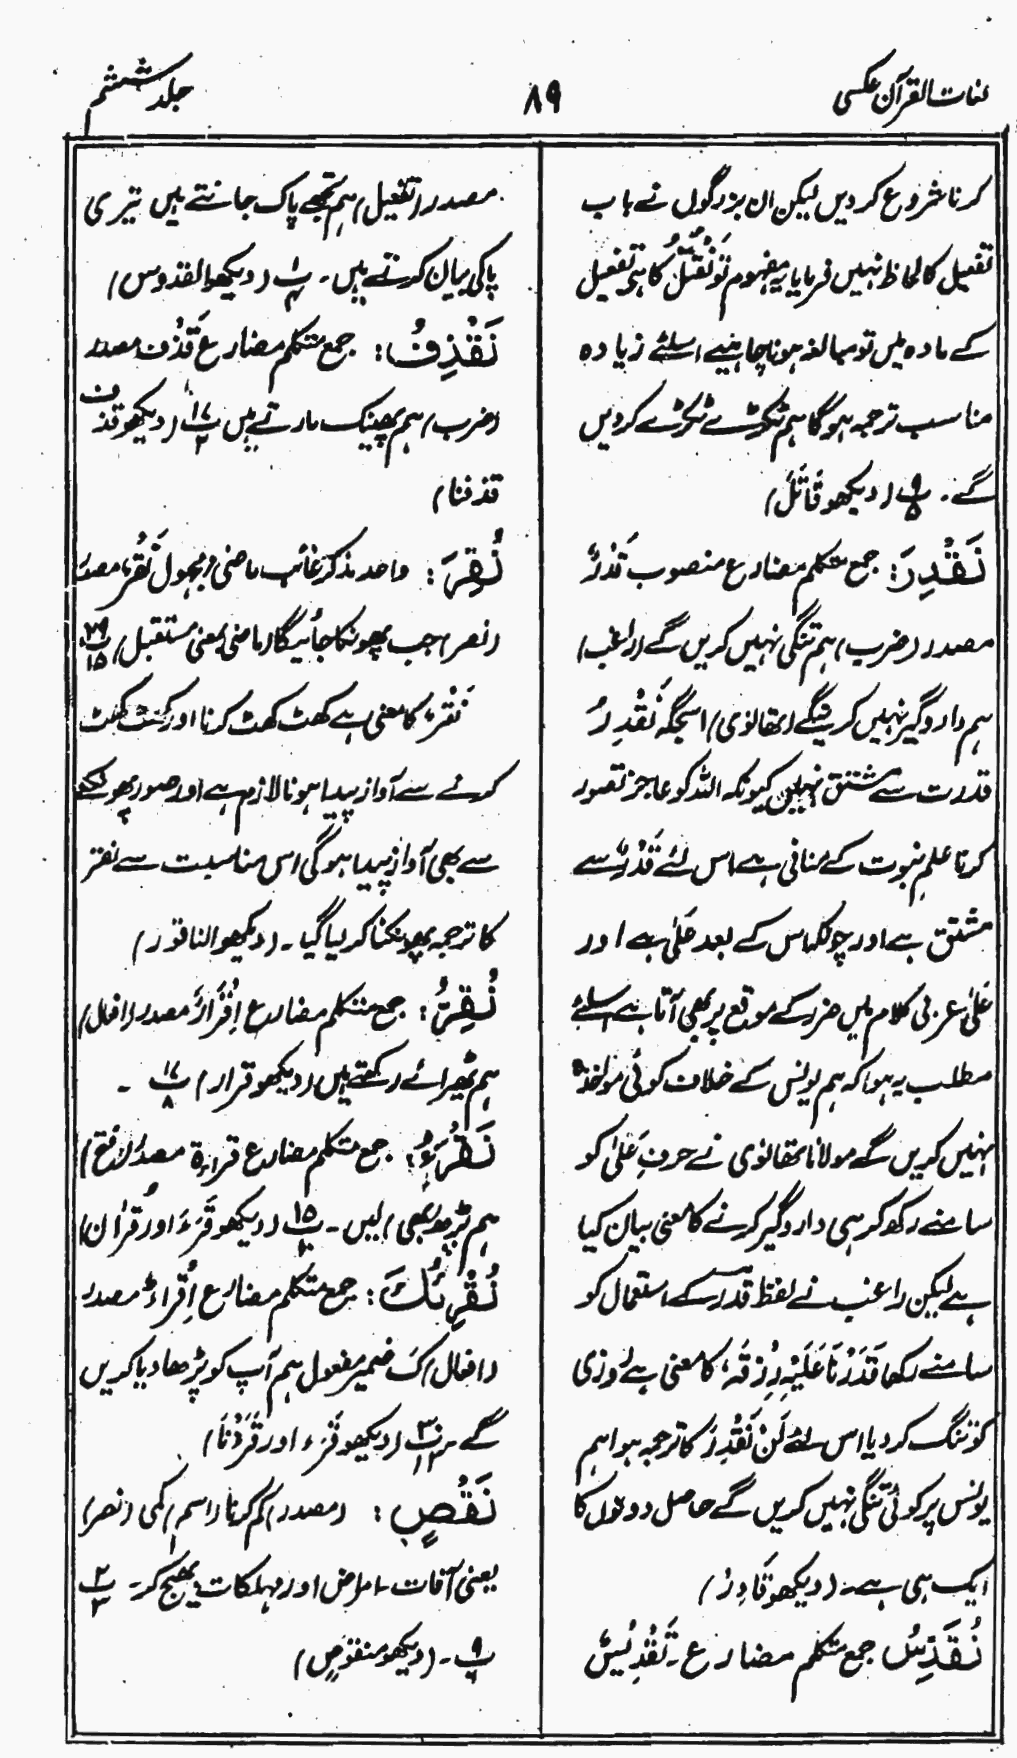 لغات القرآن عکسی
۸۹
جلد ششم
کرنا شروع کردیں لیکن ان بزرگوں نے باب
تفعیل کا لحاظ نہیں فرمایا یہ مفہوم تو نُقَتِّلُ کا ہی تفعیل
کے مادہ میں تو مبالغہ ہونا چاہئیے اسلئے زیادہ
مناسب ترجمہ ہوگا ہم ٹکڑے ٹکڑے کردیں
گے۔ پ ۹ ۵ (دیکھو قَاتَلَ)
نَقْدِرَ: جمع متکلم مضارع منصوب قَدْرٌ
مصدر (ضرب) ہم تنگی نہیں کریں گے (راغب)
ہم داروگیر نہیں کرینگے (تھانوی) اسجگہ نَقْدِرُ
قدرت سے مشتق نہیں کیونکہ اللہ کو عاجز تصور
کرنا علم نبوت کے منافی ہے اس لئے قَدْرٌ سے
مشتق ہے اور چونکہ اس کے بعد عَلٰی ہے اور
عَلٰی عربی کلام میں ضرر کے موقع پر بھی آتا ہے اسلئے
مطلب یہ ہوا کہ ہم یونس کے خلاف کوئی مواخذہ
نہیں کریں گے مولانا تھانوی نے حرفِ عَلٰی کو
سامنے رکھ کر ہی داروگیر کرنے کا معنی بیان کیا
ہے لیکن راغب نے لفظ قدر کے استعمال کو
سامنے رکھا قَدَرْنَا عَلَیْہِ رِزْقَہٗ کا معنی ہے روزی
کو تنگ کردیا اس لئے لَنْ نَّقْدِرَ کا ترجمہ ہوا ہم
یونس پر کوئی تنگی نہیں کریں گے حاصل دونوں کا
ایک ہی ہے۔ (دیکھو قَادِرٌ)
نُقَدِّسُ جمع متکلم مضارع۔ تَقْدِیْسٌ
مصدر (تفعیل) ہم تجھے پاک جانتے ہیں تیری
پاکی بیان کرتے ہیں۔ پ ۱ ۴ (دیکھو القدوس)
نَقْذِفُ: جمع متکلم مضارع قَذْفٌ مصدر
(ضرب) ہم پھینک مارتے ہیں پ ۱۷ ۲ (دیکھو قذف
قذفنا)
نُقِرَ: واحد مذکر غائب ماضی مجہول نَقْرٌ، مصدر
(نصر) جب پھونکا جائیگا (ماضی بمعنی مستقبل) پ ۲۹ ۱۵
نَقْرٌ، کا معنی ہے کھٹ کھٹ کرنا اور کھٹ کھٹ
کرنے سے آواز پیدا ہونا لازم ہے اور صور پھونکنے
سے بھی آواز پیدا ہوگی اس مناسبت سے نقر
کا ترجمہ پھونکنا کرلیا گیا۔ (دیکھو الناقور)
نُقِرُّ: جمع متکلم مضارع اِقْرَارٌ مصدر (افعال)
ہم ٹھیرائے رکھتے ہیں (دیکھو قرار) پ ۱۷ ۸ ۔
نَقْرَءُ: جمع متکلم مضارع قراءۃ مصدر (فتح)
ہم پڑھ بھی) لیں۔ پ ۱۵ ۱۰ (دیکھو قَرَءَ اور قُرْاٰن)
نُقْرِئُكَ: جمع متکلم مضارع اِقْراءٌ مصدر
(افعال) کَ ضمیر مفعول ہم آپ کو پڑھا دیا کریں
گے پ ۳۰ ۱۲ (دیکھو قَرَء اور قَرَءْنَا)
نَقْصٍ: (مصدر) کم کرنا (اسم) کمی (نصر)
یعنی آفات۔ امراض اور مہلکات بھیج کر۔ پ ۲ ۳
پ ۹ ۶۔ (دیکھو منقوص)